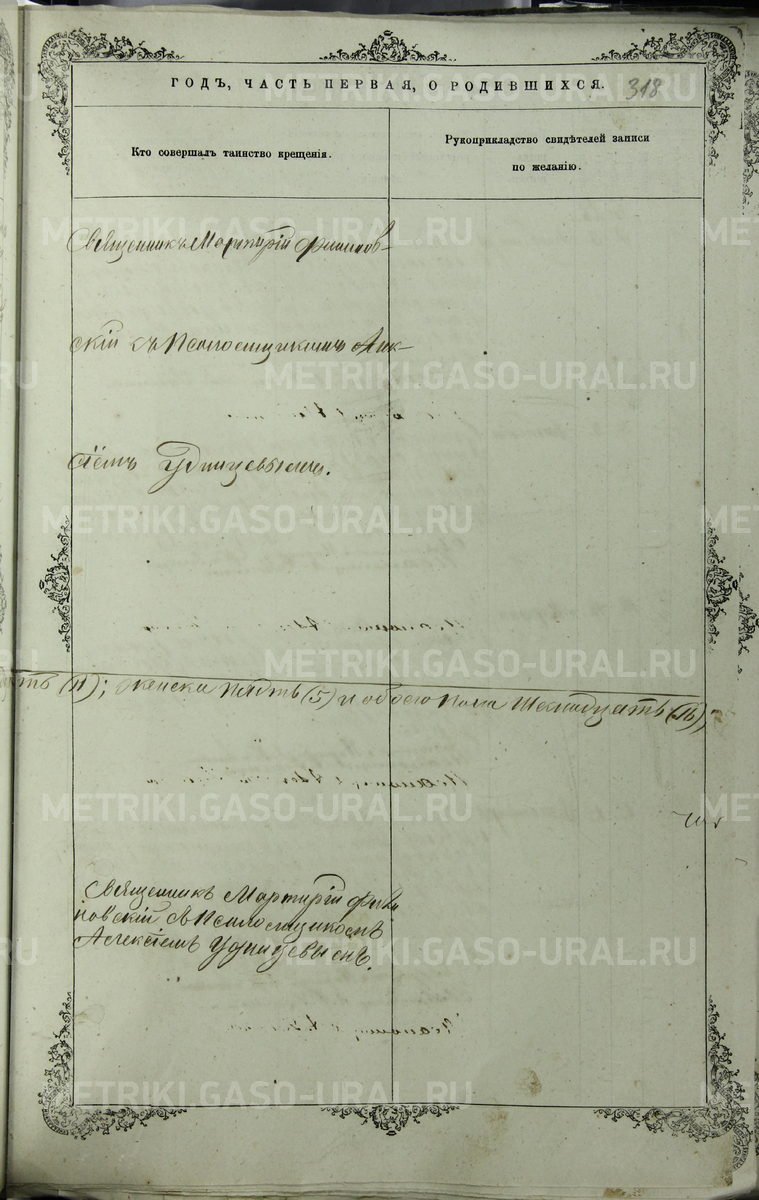 ГОДЪ, ЧАСТЬ ПЕРВАЯ, О РОДИВШИХСЯ. 318
Кто совершалъ таинство крещенія.
Рукоприкладство свидѣтелей записи
по желанію.
Священникъ Мартирій Филинов-
скій съ Псаломщикомъ Алек-
сіемъ Удинцевымъ.
(11); женска пять (5) и обоего пола шеснадцать (16);
Священникъ Мартирій Фили
новскій съ Псаломщикомъ
Алексіемъ Удинцевымъ.
METRIKI.GASO-URAL.RU